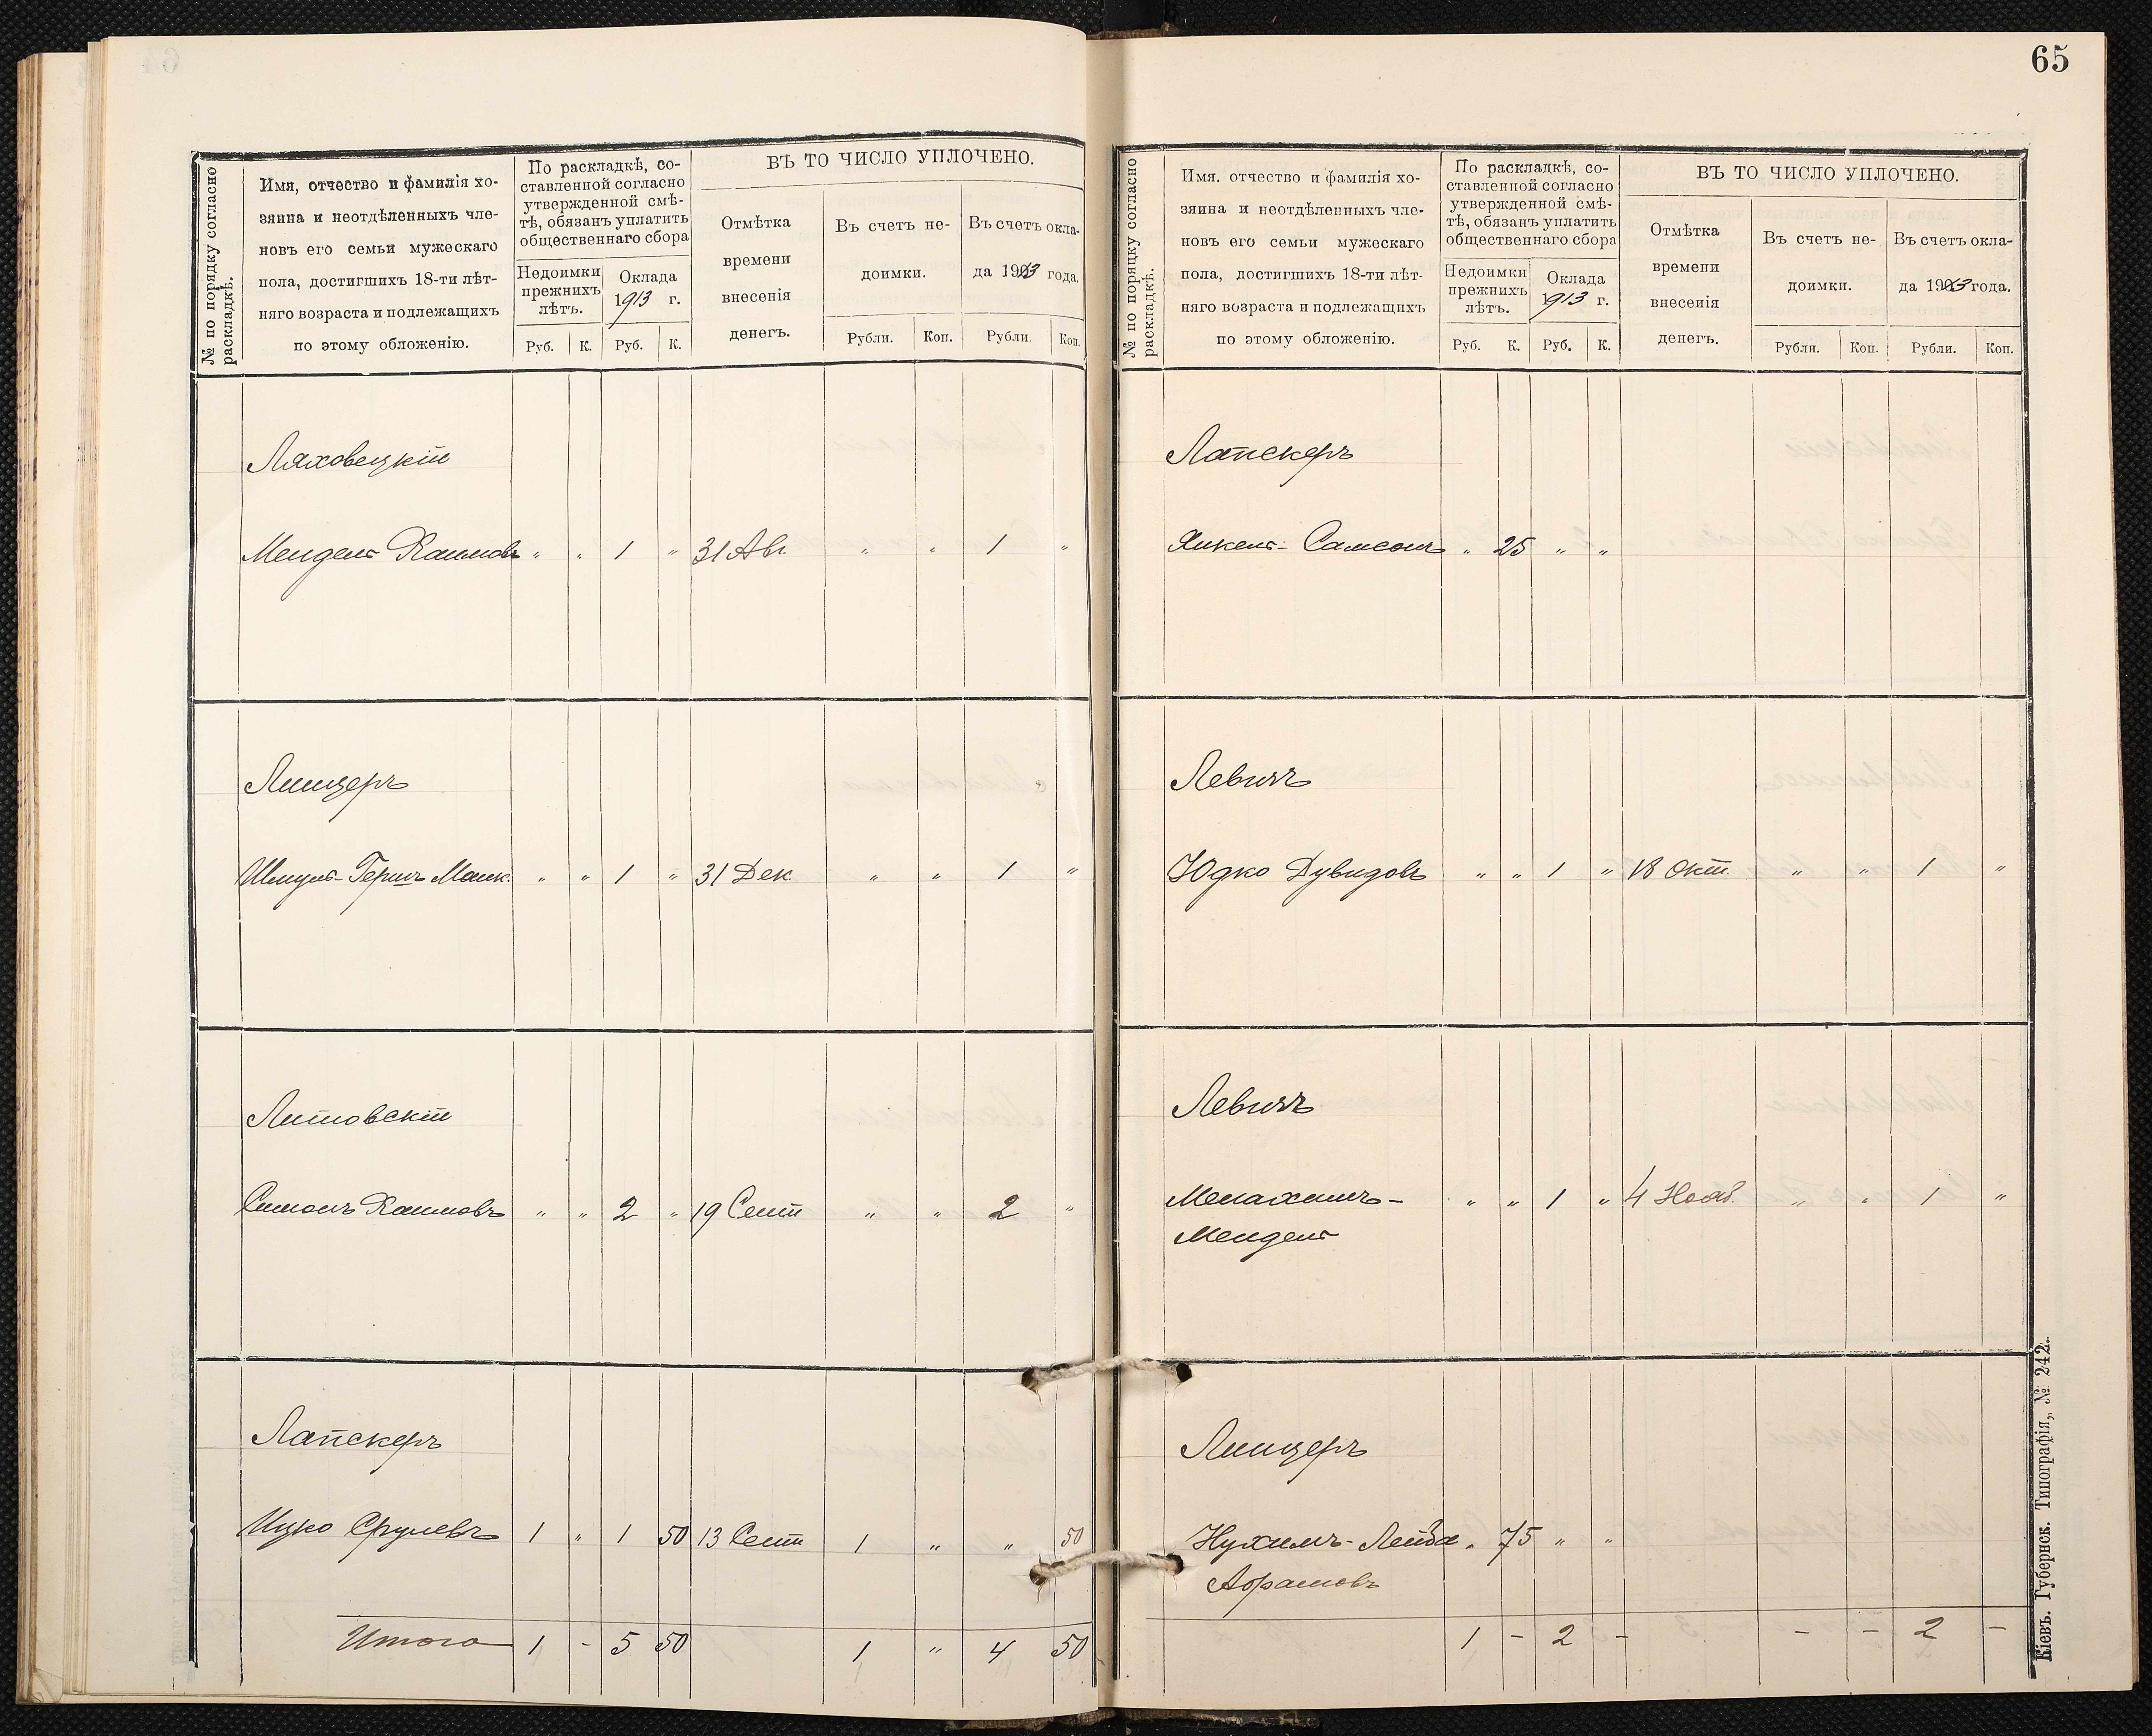 65
№ по порядку согласно
раскладкѣ.
Имя, отчество и фамилія хо-
зяина и неотдѣленныхъ чле-
новъ его семьи мужескаго
пола, достигшихъ 18-ти лѣт-
няго возраста и подлежащихъ
по этому обложенію.
По раскладкѣ, со-
ставленной согласно
утвержденной смѣ-
тѣ, обязанъ уплатить
общественнаго сбора
Недоимки
прежнихъ
лѣтъ.
Оклада
1913 г.
Руб. К. Руб. К.
ВЪ ТО ЧИСЛО УПЛОЧЕНО.
Отмѣтка
времени
внесенія
денегъ.
Въ счетъ не-
доимки.
Въ счетъ окла-
да 1913 года.
Рубли. Коп. Рубли. Коп.
Ляховецкій
Мендель Хаимовъ " " 1 " 31 Авг " " 1 "
Линцеръ
Шмуль-Гершъ Моик. " " 1 " 31 Дек. " " 1 "
Литовскій
Симонъ Хаимовъ " " 2 " 19 Сент " " 2 "
Лапскеръ
Ицко Срулевъ 1 " 1 50 13 Сент 1 " " 50
Итого 1 - 5 50 1 " 4 50
№ по порядку согласно
раскладкѣ.
Имя, отчество и фамилія хо-
зяина и неотдѣленныхъ чле-
новъ его семьи мужескаго
пола, достигшихъ 18-ти лѣт-
няго возраста и подлежащихъ
по этому обложенію.
По раскладкѣ, со-
ставленной согласно
утвержденной смѣ-
тѣ, обязанъ уплатить
общественнаго сбора
Недоимки
прежнихъ
лѣтъ.
Оклада
1913 г.
Руб. К. Руб. К.
ВЪ ТО ЧИСЛО УПЛОЧЕНО.
Отмѣтка
времени
внесенія
денегъ.
Въ счетъ не-
доимки.
Въ счетъ окла-
да 1913 года.
Рубли. Коп. Рубли. Коп.
Лапскеръ
Янкель-Самсонъ " 25 " "
Левинъ
Юдко Дувидовъ " " 1 " 18 Окт. " " 1 "
Левинъ
Менахимъ- " " 1 " 4 Нояб. " " 1 "
Мендель
Линцеръ
Нухимъ-Лейба " 75 " "
Абрамовъ
1 - 2 - - - 2 -
Кіевъ. Губернск. Типографія, № 242.